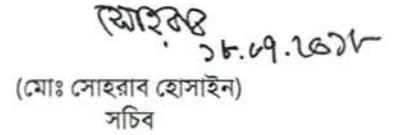 সোহরাব
১৮.০৭.২০১৮
(মোঃ সোহরাব হোসাইন)
সচিব